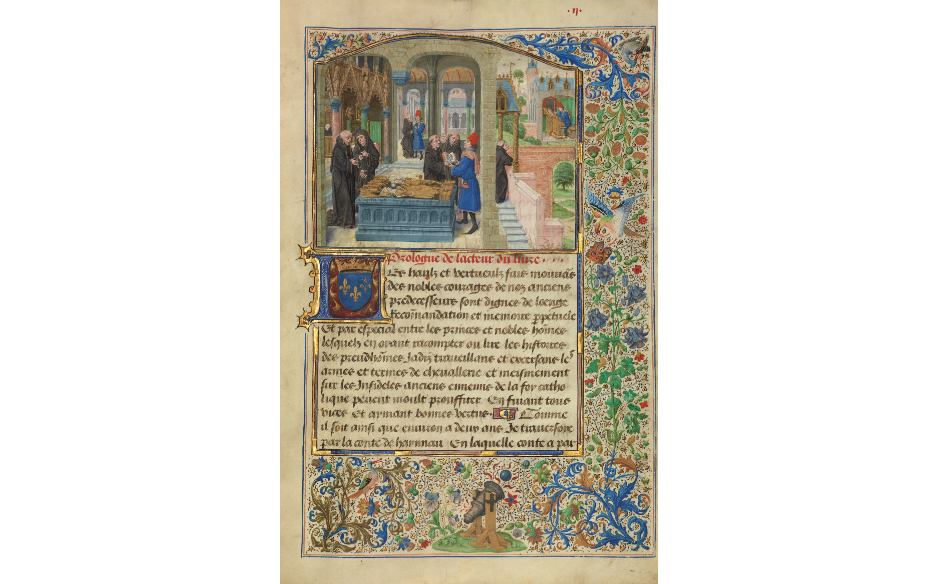 ·n·
Prologue de lacteur du liure
Les haulz et vertueulx fais mouuans
des nobles courages de noz anciens
predecesseurs sont dignes de loenge
Recõmandation et memoire ꝑpetuele
Et par especial entre les princes et nobles hõmes
lesquelz en oyant racompter ou lire les histoires
des preudhõmes Jadis trauaillans et excersans les
armes et termes de cheuallerie et meismement
sur les Infideles anciens ennemis de la foy catho
lique peuent moult prouffiter En fuiant tous
vices Et aymant bonnes vertus Comme
il soit ainsi que enuiron a deux ans Je trauersoye
par la conte de haynnau En laquelle conte a par